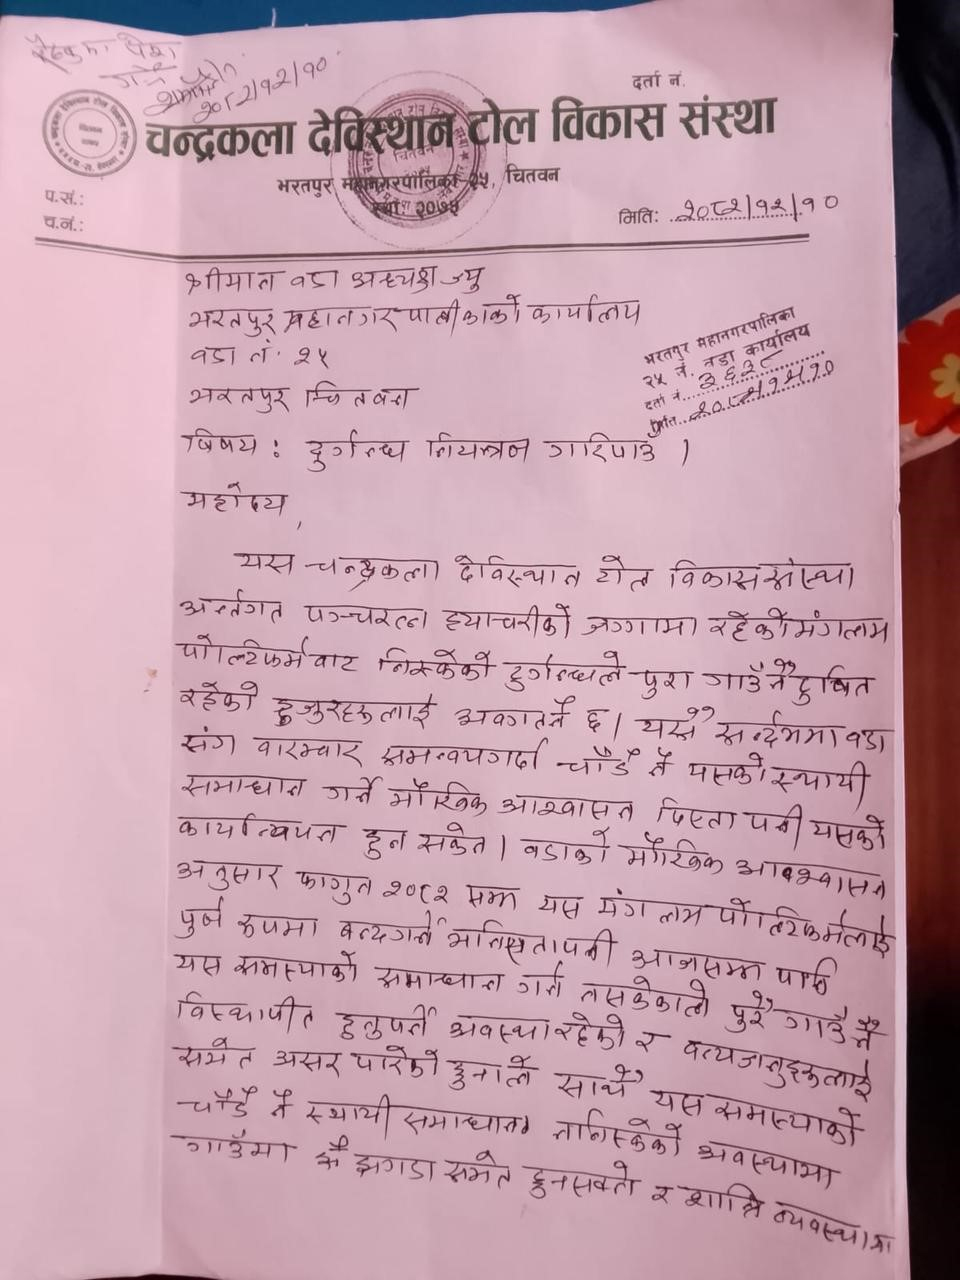 बैठकमा पेश
गर्ने
२०८२/१२/१०
दर्ता नं.
चन्द्रकला देविस्थान टोल विकास संस्था
भरतपुर महानगरपालिका २५, चितवन
स्था २०७५
प.सं.:
च.नं.:
मिति: २०८२/१२/१०
श्रीमान वडा अध्यक्ष ज्यु
भरतपुर महानगरपालीकाको कार्यालय
वडा नं. २५
भरतपुर चितवन
भरतपुर महानगरपालिका
२५ नं. वडा कार्यालय
दर्ता नं. ३६३८
मिति २०८२/१२/१०
विषय : दुर्गन्ध नियन्त्रन गरिपाउँ ।
महोदय,
यस चन्द्रकला देविस्थान टोल विकास संस्था
अर्न्तगत पञ्चरत्न ह्याचरीको जग्गामा रहेको मंगलम
पोल्टिफर्मबाट निस्केको दुर्गन्धले पुरा गाउँनै दुषित
रहेको हजुरहरुलाई अवगतनै छ। यसै सर्न्दभमा वडा
संग वारम्वार समन्वयगर्दा चाँडै नै यसको स्थायी
समाधान गर्ने मौखिक आश्वासन दिएता पनी यसको
कार्यान्वयन हुन सकेन। वडाको मौखिक आश्वासन
अनुसार फागुन २०८२ सम्म यस मंगलम पोल्टिफर्मलाई
पुर्ण रुपमा बन्दगर्ने भनिएतापनी आजसम्म पनि
यस समस्याको समाधान गर्न नसकेकाले पुरै गाउँ नै
विस्थापीत हुनुपर्ने अवस्था रहेको र वन्यजन्तुहरुलाई
समेत असर पारेको हुनाले साथै यस समस्याको
चाँडै नै स्थायी समाधान ननिस्केको अवस्थामा
गाउँमा झै झगडा समेत हुनसक्ने र शान्ति व्यवस्थामा